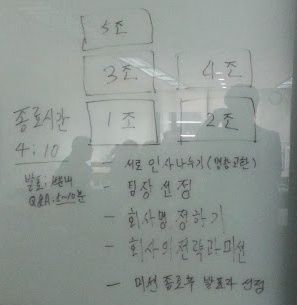 5조
3조
4조
1조
2조
종료시간
4:10
발표:
Q&A: 5~10분
- 서로 인사나누기(명함교환)
- 팀장 선정
- 회사명 정하기
- 회사의 전략과 미션
- 미션 종료후 발표자 선정